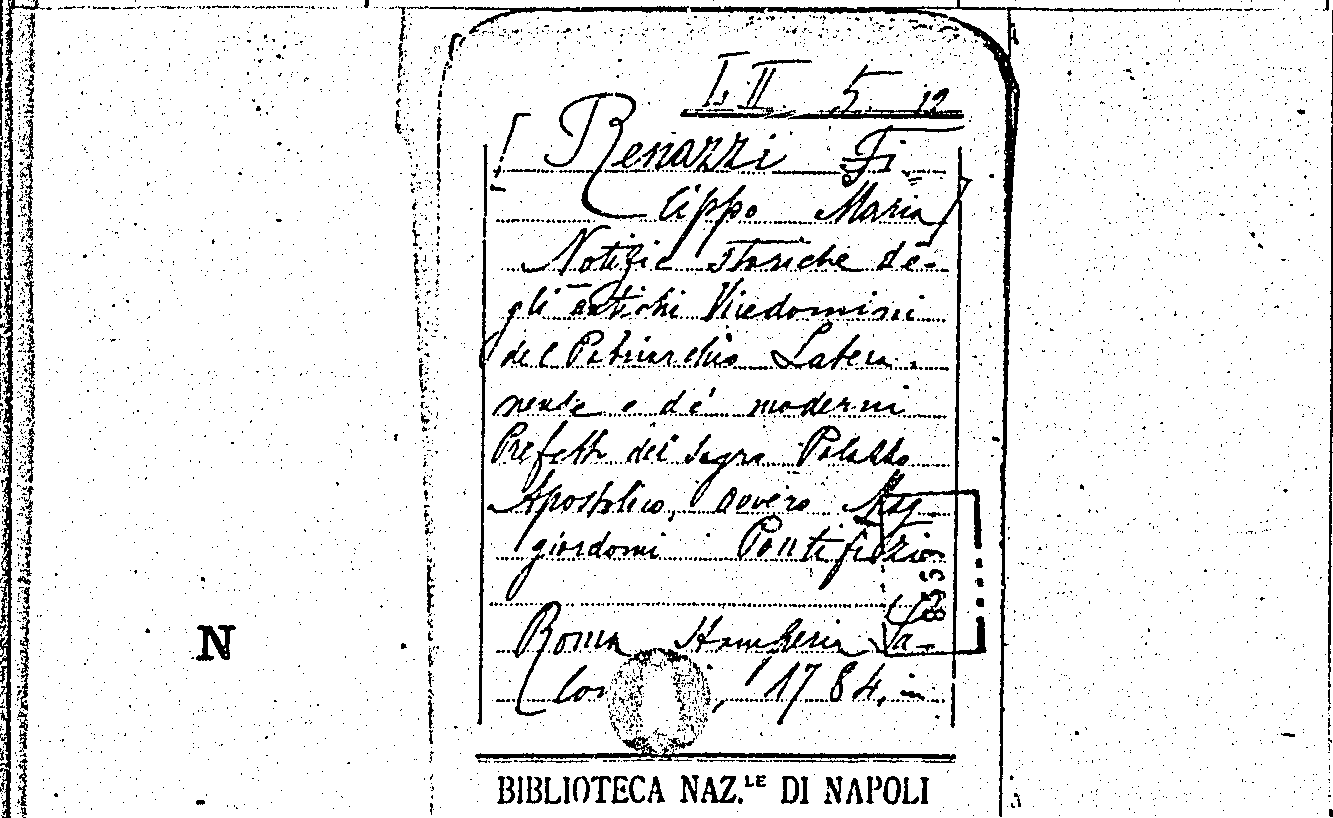 L. II 5 12
[Renazzi Fi-
lippo Maria]
Notizie storiche de-
gli antichi Vicedomini
del Patriarchio Latera-
nense e de' moderni
Prefetti del Sagro Palazzo
Apostolico, ovvero Mag-
giordomi Pontifizi
Roma Stamperia Sa-
lo 1784, in
N
BIBLIOTECA NAZ.LE DI NAPOLI